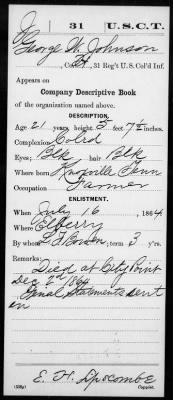 J 31 U.S.C.T.
George W. Johnson
Co. H, 31 Reg't U.S. Col'd Inf.
Appears on
Company Descriptive Book
of the organization named above.
DESCRIPTION.
Age 21 years; height 5 feet 7½ inches.
Complexion Colrd
Eyes; Blk hair Blk
Where born Knoxville Tenn
Occupation Farmer
ENLISTMENT.
When July 16, 1864
Where Elberry
By whom Bowen; term 3 y'rs.
Remarks:
Died at City Point
Dec 2d 1864
Final Statements sent
in
E. H. Lipscombe
Copyist.